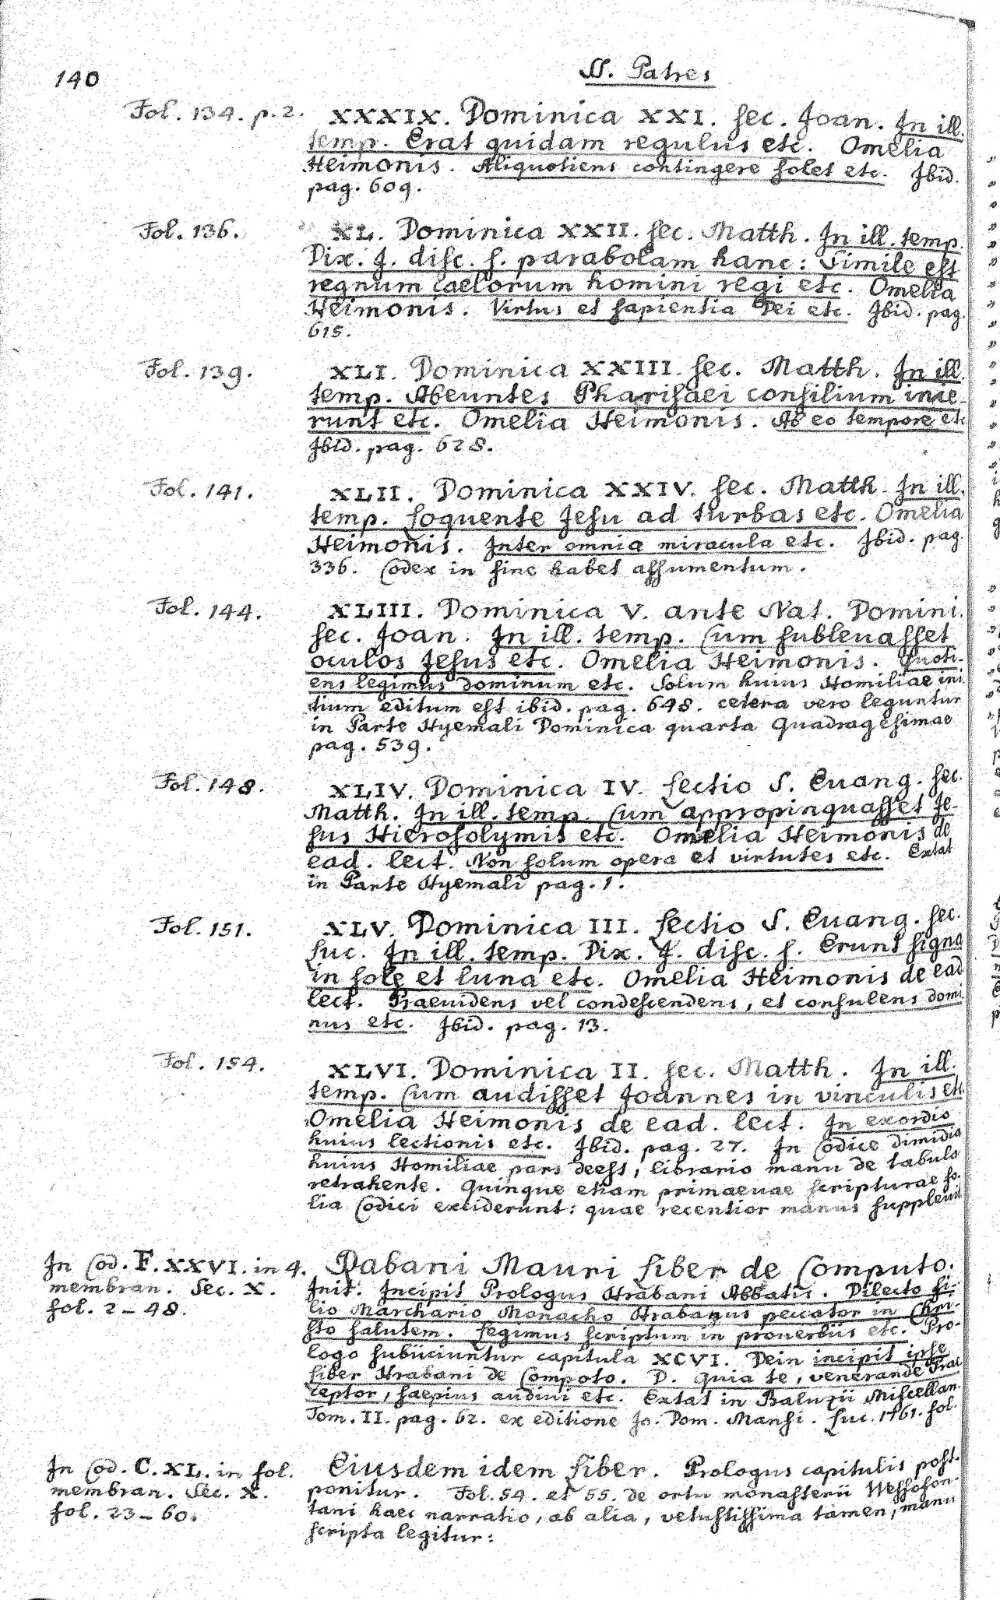 140
SS. Patres
Fol. 134. p. 2.
XXXIX. Dominica XXI. sec. Joan. In ill.
temp. Erat quidam regulus etc. Omelia
Heimonis. Aliquotiens contingere solet etc. Ibid.
pag. 609.
Fol. 136.
XL. Dominica XXII. sec. Matth. In ill. temp.
Dix. J. disc. s. parabolam hanc: Simile est
regnum caelorum homini regi etc. Omelia
Heimonis. Virtus et sapientia Dei etc. Ibid. pag.
615.
Fol. 139.
XLI. Dominica XXIII. sec. Matth. In ill.
temp. Abeuntes Pharisaei consilium inie-
runt etc. Omelia Heimonis. Ab eo tempore etc
Ibid. pag. 628.
Fol. 141.
XLII. Dominica XXIV. sec. Matth. In ill.
temp. Loquente Jesu ad turbas etc. Omelia
Heimonis. Inter omnia miracula etc. Ibid. pag.
336. Codex in fine habet assumentum.
Fol. 144.
XLIII. Dominica V. ante Nat. Domini.
sec. Joan. In ill. temp. Cum subleuasset
oculos Jesus etc. Omelia Heimonis. Quoti-
ens legimus dominum etc. Solum huius Homiliae ini
tium editum est ibid. pag. 648. cetera vero leguntur
in Parte Hyemali Dominica quarta Quadragesimae
pag. 539.
Fol. 148.
XLIV. Dominica IV. Lectio S. Euang. sec.
Matth. In ill. temp. Cum appropinquasset Je-
sus Hierosolymis etc. Omelia Heimonis de
ead. lect. Non solum opera et virtutes etc. Extat
in Parte Hyemali pag. 1.
Fol. 151.
XLV. Dominica III. Lectio S. Euang. sec.
Luc. In ill. temp. Dix. J. disc. s. Erunt signa
in sole et luna etc. Omelia Heimonis de ead
lect. Praeuidens vel condescendens, et consulens domi
nus etc. Ibid. pag. 13.
Fol. 154.
XLVI. Dominica II. sec. Matth. In ill.
temp. Cum audisset Joannes in vinculis etc
Omelia Heimonis de ead. lect. In exordio
huius lectionis etc. Ibid. pag. 27. In Codice dimidia
huius Homiliae pars deest, librario manu de tabula
retrahente. Quinque etiam primaeuae scripturae fo-
lia Codici exciderunt: quae recentior manus suppleuit
In Cod. F. XXVI. in 4.
membran. Sec. X.
fol. 2-48.
Rabani Mauri Liber de Computo.
Init. Incipit Prologus Hrabani Abbatis. Dilecto fi-
lio Marchario Monacho Hrabanus peccator in Chri-
sto salutem. Legimus scriptum in prouerbiis etc. Pro-
logo subiiciuntur capitula XCVI. Dein incipit ipse
Liber Hrabani de Compoto. D. Quia te, venerande Prae
ceptor, saepius audiui etc. Extat in Baluzii Miscellan.
Tom. II. pag. 62. ex editione Jo. Dom. Mansi. Luc. 1761. fol.
In Cod. C. XL. in fol.
membran. Sec. X.
fol. 23-60.
Eiusdem idem Liber. Prologus capitulis post-
ponitur. Fol. 54. et 55. de ortu monasterii Wessofon-
tani haec narratio, ab alia, vetustissima tamen, manu
scripta legitur: